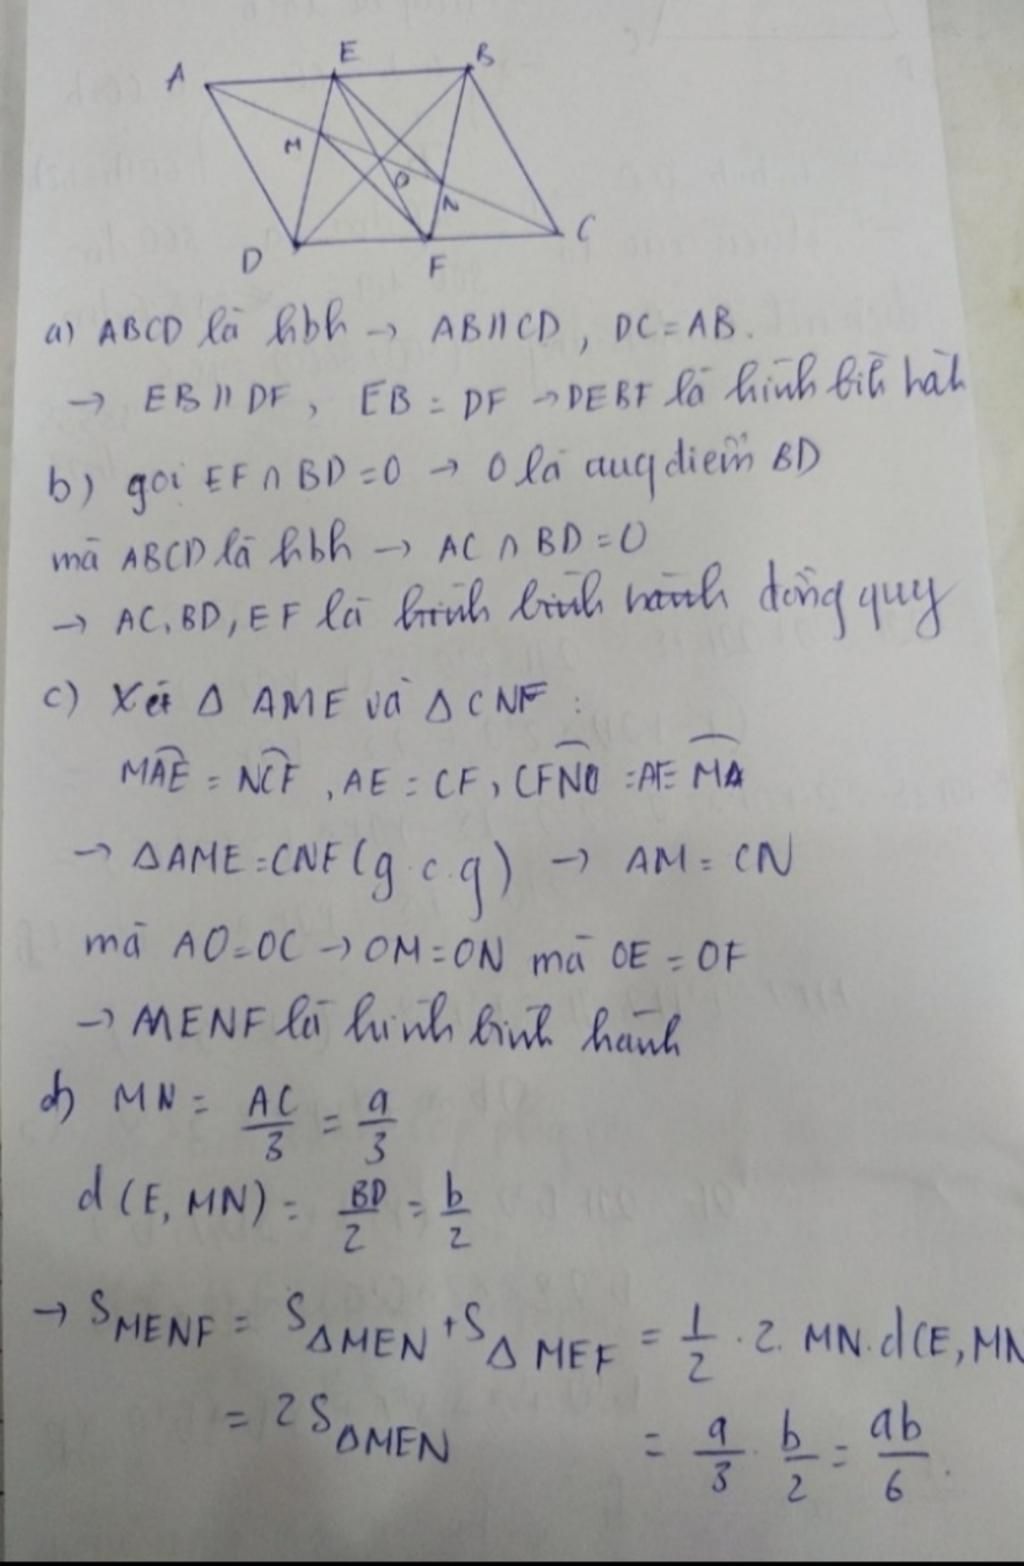 A E B
M
O
N
D F C
a) ABCD là hbh → AB // CD, DC = AB.
→ EB // DF, EB = DF → DEBF là hình bih hàh
b) gọi EF ∩ BD = O → O là điểm BD
mà ABCD là hbh → AC ∩ BD = O
→ AC, BD, EF là hình bình hành đồng quy
c) Xét Δ AME và Δ CNF :
MAE = NCF, AE = CF,
→ ΔAME = CNF (g.c.g) → AM = CN
mà AO = OC → OM = ON mà OE = OF
→ MENF là hình bình hành
d) MN = AC/3 = a/3
d(E, MN) = BD/2 = b/2
→ S MENF = S ΔMEN + S Δ MEF = 1/2 . 2. MN. d(E, MN
= 2S ΔMEN = a/3 . b/2 = ab/6.